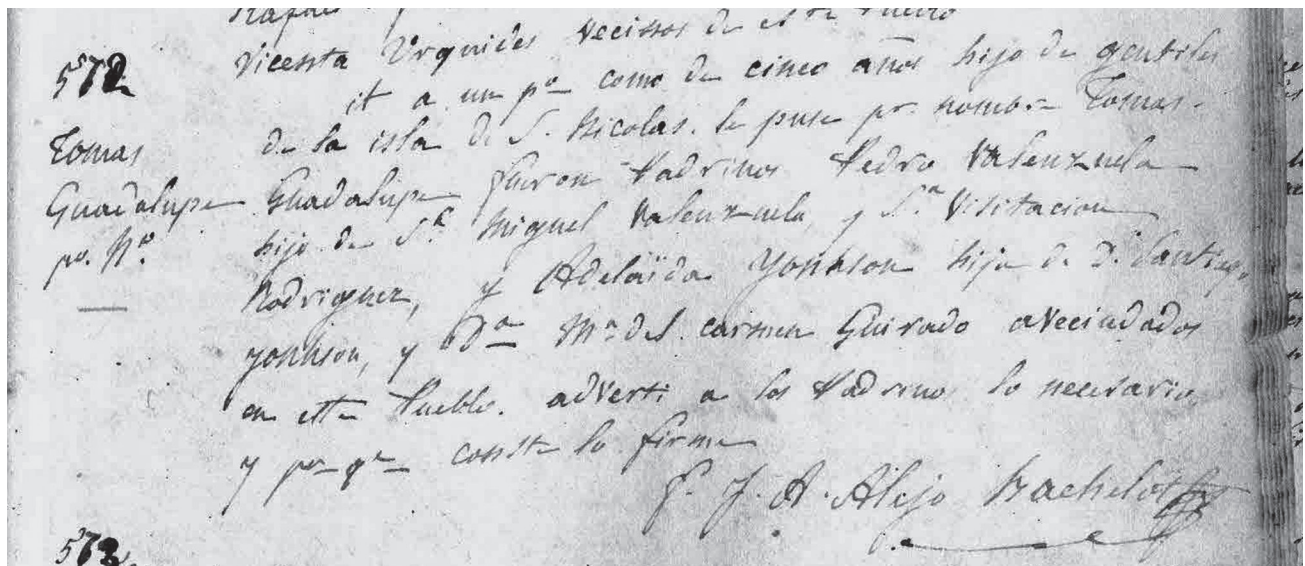 Vicenta Urquides vecinos de este Pueblo
572
it a un po como de cinco años hijo de gentiles
de la isla de S. Nicolas. le puse pr. nombre Tomas.
Tomas
Guadalupe
po. No.
Guadalupe fueron Padrinos Pedro Valenzuela
hijo de Sr. Miguel Valenzuela, y Sa. Visitacion
Rodriguez, y Adelaïda Yonhson hija de Dn. Santiago
Yonhson, y Da Ma. del Carmen Guirado avecindados
en este Pueblo. adverti a los Padrinos lo necesario,
y pa qe conste lo firme
F. J. A. Alejo Bachelot
573.